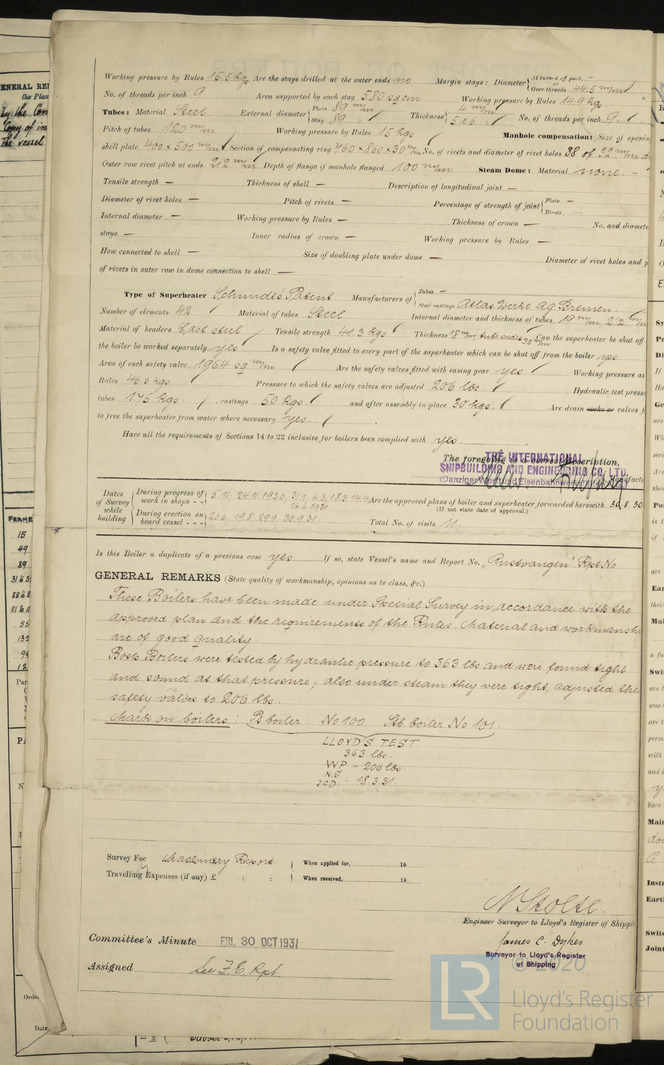 Working pressure by Rules 15.5 kg. Are the stays drilled at the outer ends no Margin stays: Diameter { At turned off part, – Over threads 44.5 m/m
No. of threads per inch 9 Area supported by each stay 580 sq cm Working pressure by Rules 14.9 kg
Tubes: Material Steel External diameter { Plain 89 m/m Stay 89 " Thickness { 4 m/m 5.06 " No. of threads per inch 9.
Pitch of tubes 120 m/m Working pressure by Rules 15 kgs Manhole compensation: Size of opening
shell plate 400 x 500 m/m Section of compensating ring 760 x 860 x 30 m/m No. of rivets and diameter of rivet holes 38 of 32 m/m
Outer row rivet pitch at ends 212 m/m Depth of flange if manhole flanged 100 m/m Steam Dome: Material none. –
Tensile strength – Thickness of shell – Description of longitudinal joint –
Diameter of rivet holes – Pitch of rivets – Percentage of strength of joint { Plate – Rivets –
Internal diameter – Working pressure by Rules – Thickness of crown – No. and diameter
stays – Inner radius of crown – Working pressure by Rules –
How connected to shell – Size of doubling plate under dome – Diameter of rivet holes and p
of rivets in outer row in dome connection to shell –
Type of Superheater Schmidt's Patent Manufacturers of { Tubes – Steel castings Atlas Werke Ag Bremen.
Number of elements 42 Material of tubes Steel Internal diameter and thickness of tubes 19 m/m 2 1/2 m/m
Material of headers Cast steel Tensile strength 41.3 kgs Thickness 18 m/m tube side 30 m/m Can the superheater be shut off
the boiler be worked separately yes Is a safety valve fitted to every part of the superheater which can be shut off from the boiler yes
Area of each safety valve 1964 sq m/m Are the safety valves fitted with easing gear yes Working pressure as
Rules 46.6 kgs Pressure to which the safety valves are adjusted 206 lbs. Hydraulic test pressure
tubes 175 kgs. castings 50 kgs and after assembly in place 30 kgs. Are drain cocks or valves f
to free the superheater from water where necessary yes.
Have all the requirements of Sections 14 to 22 inclusive for boilers been complied with yes.
The foregoing is a correct description,
THE INTERNATIONAL
SHIPBUILDING AND ENGINEERING CO. LTD.
Dates of Survey while building
During progress of work in shops - -
Are the approved plans of boiler and superheater forwarded herewith 30.8.30
(If not state date of approval.)
During erection on board vessel - - -
Total No. of visits 11.
Is this Boiler a duplicate of a previous case yes If so, state Vessel's name and Report No. Rpt No
GENERAL REMARKS (State quality of workmanship, opinions as to class, &c.)
These Boilers have been made under Special Survey in accordance with the
approved plan and the requirements of the Rules. Material and workmansh
are of good quality.
Both Boilers were tested by hydraulic pressure to 363 lbs and were found tight
and sound at that pressure; also under steam they were tight, adjusted the
safety valves to 206 lbs.
Mark on boilers: Ps boiler No 100. Stb boiler No 101.
LLOYD'S TEST
363 lbs.
WP – 206 lbs
N.S.
18.3.31
Survey Fee Machinery Report When applied for, 19
Travelling Expenses (if any) £ : : When received, 19
N Stolte.
Engineer Surveyor to Lloyd's Register of Shippin
James C. Dykes
Surveyor to Lloyd's Register
of Shipping
Committee's Minute FRI. 30 OCT 1931
Assigned See F.E. Rpt
© 2020
LR
Lloyd's Register
Foundation